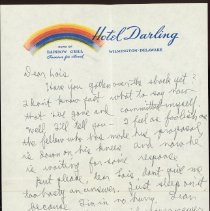 Hotel Darling
HOME OF
RAINBOW GRILL
Famous for Food
WILMINGTON - DELAWARE
Dear Lois
Have you gotten over the shock yet?
I don't know just what to say now
that I've gone and committed myself
Well I'll tell you - I feel as foolish as
the fellow who has made his proposal
is down on his knees and now he
is waiting for some response
But please dear Lois, don't give me
too hasty an answer. Just sleep on it
because I'm in no hurry. Dear